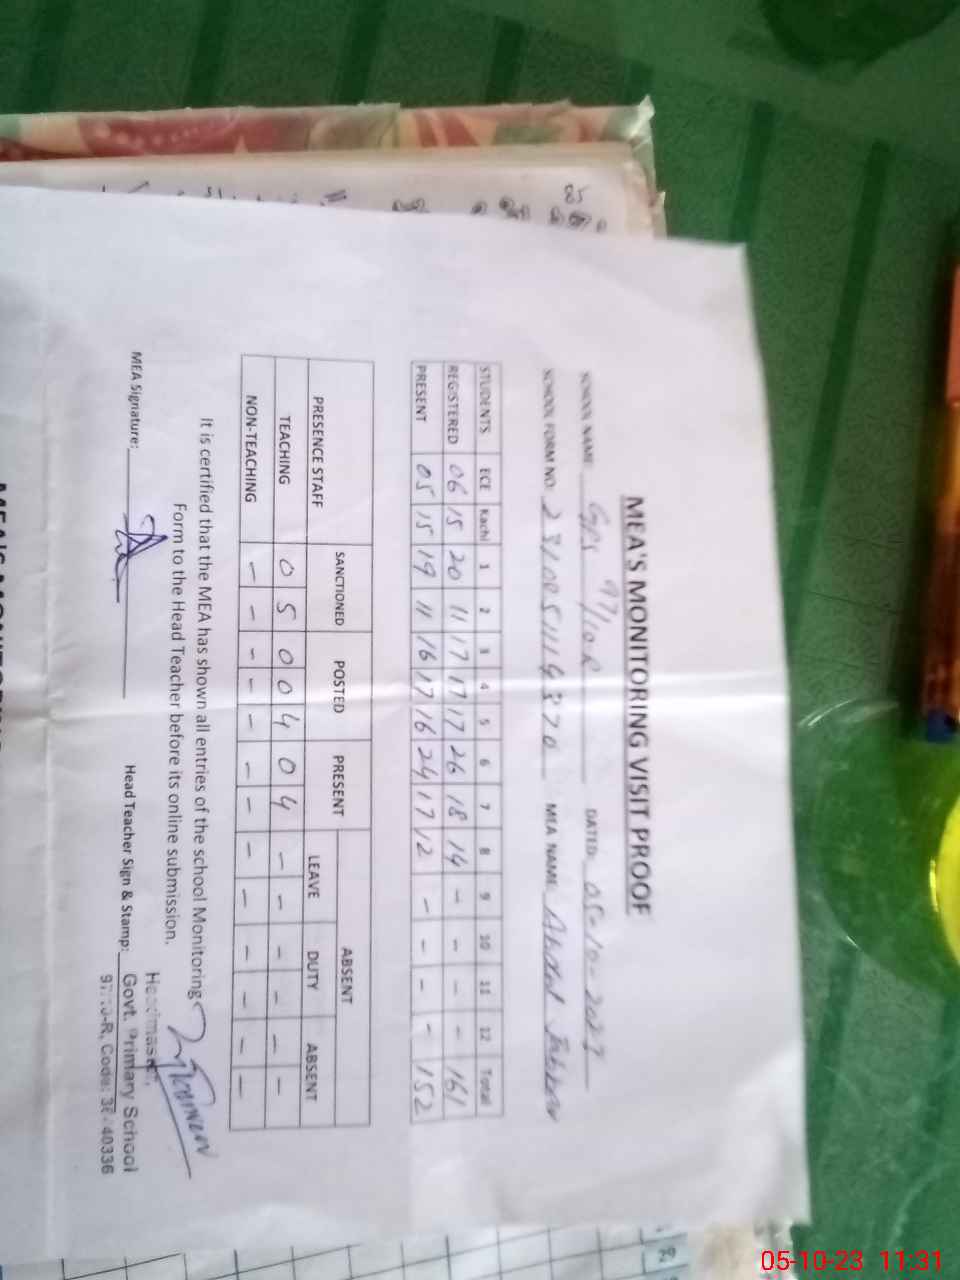 MEA'S MONITORING VISIT PROOF
SCHOOL NAME GPS 97/10R DATED: 05-10-2023
SCHOOL FORM NO: MEA NAME Abdul
STUDENTS ECE Kachi 1 2 3 4 5 6 7 8 9 10 11 12 Total
REGISTERED 06 15 20 11 17 17 17 26 18 14 - - - - 161
PRESENT 05 15 19 11 16 17 16 24 17 12 - - - - 152
PRESENCE STAFF SANCTIONED POSTED PRESENT ABSENT
LEAVE DUTY ABSENT
TEACHING 0 5 0 0 4 0 4 - - - - - -
NON-TEACHING - - - - - - - - - - - - -
It is certified that the MEA has shown all entries of the school Monitoring
Form to the Head Teacher before its online submission.
MEA Signature: Head Teacher Sign & Stamp:
Headmaster,
Govt. Primary School
-R, Code: 40336
29
05-10-23 11:31